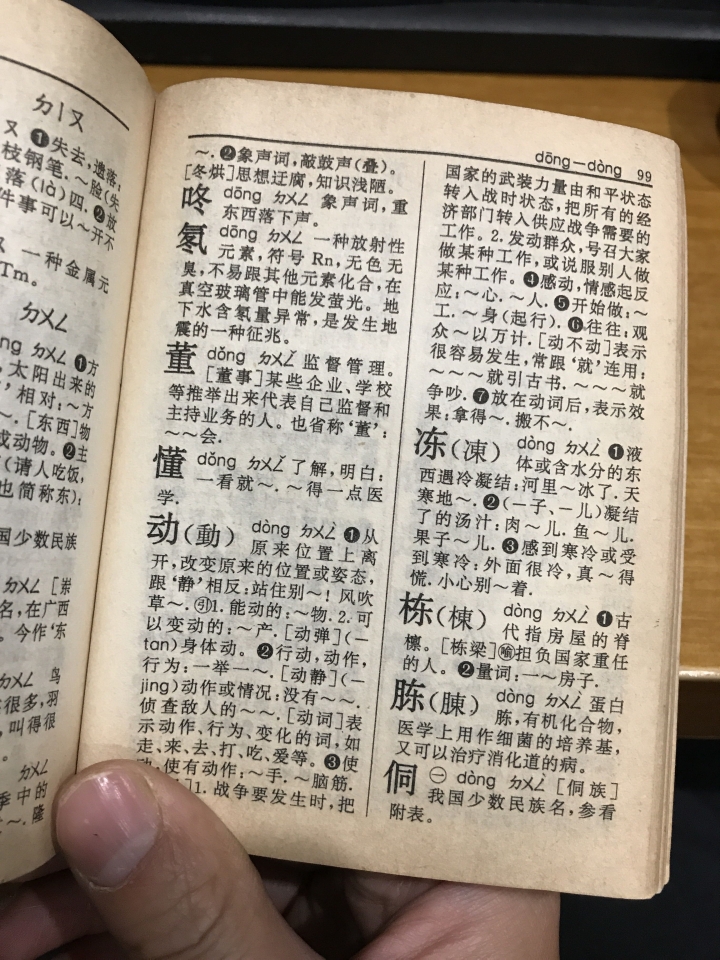 ㄉㄧㄡ
又 ❶失去,遗落:
枝钢笔. ～脸(失
落(là)四. ❷放
件事可以～开不
一种金属元
Tm。
ㄉㄨㄥ
ng ㄉㄨㄥ ❶方
,太阳出来的
’相对:～方
～. [东西]物
或动物。❷主
(请人吃饭,
也简称东):
国少数民族
ㄉㄨㄥ [崇
名,在广西
。今作‘东
ㄉㄨㄥ 鸟
很多,羽
叫得很
ㄉㄨㄥ
季中的
～. 隆
dōng—dòng 99
～. ❷象声词,敲鼓声(叠)。
[冬烘]思想迂腐,知识浅陋。
咚 dōng ㄉㄨㄥ 象声词,重
东西落下声。
氡 dōng ㄉㄨㄥ 一种放射性
元素,符号 Rn,无色无
臭,不易跟其他元素化合,在
真空玻璃管中能发萤光。地
下水含氡量异常,是发生地
震的一种征兆。
董 dǒng ㄉㄨㄥˇ 监督管理。
[董事]某些企业、学校
等推举出来代表自己监督和
主持业务的人。也省称‘董’:
～～会.
懂 dǒng ㄉㄨㄥˇ 了解,明白:
一看就～. ～得一点医
学.
动(動) dòng ㄉㄨㄥˋ ❶从
原来位置上离
开,改变原来的位置或姿态,
跟‘静’相反:站住别～! 风吹
草～. ㊤1. 能动的:～物. 2. 可
以变动的:～产. [动弹](—
tan)身体动。❷行动,动作,
行为:一举一～. [动静](—
jing)动作或情况:没有～～.
侦查敌人的～～. [动词]表
示动作、行为、变化的词,如
走、来、去、打、吃、爱等。❸使
动,使有动作:～手. ～脑筋.
]1. 战争要发生时,把
国家的武装力量由和平状态
转入战时状态,把所有的经
济部门转入供应战争需要的
工作。2. 发动群众,号召大家
做某种工作,或说服别人做
某种工作。❹感动,情感起反
应:～心. ～人. ❺开始做:～
工. ～身(起行). ❻往往:观
众～以万计. [动不动]表示
很容易发生,常跟‘就’连用:
～～～就引古书. ～～～就
争吵. ❼放在动词后,表示效
果:拿得～. 搬不～.
冻(凍) dòng ㄉㄨㄥˋ ❶液
体或含水分的东
西遇冷凝结:河里～冰了. 天
寒地～. ❷(—子、—儿)凝结
了的汤汁:肉～儿. 鱼～儿.
果子～儿. ❸感到寒冷或受
到寒冷:外面很冷,真～得
慌. 小心别～着.
栋(棟) dòng ㄉㄨㄥˋ ❶古
代指房屋的脊
檩。[栋梁]㊗担负国家重任
的人。❷量词:一～房子.
胨(腖) dòng ㄉㄨㄥˋ 蛋白
胨,有机化合物,
医学上用作细菌的培养基,
又可以治疗消化道的病。
侗 ㊀ dòng ㄉㄨㄥˋ [侗族]
我国少数民族名,参看
附表。